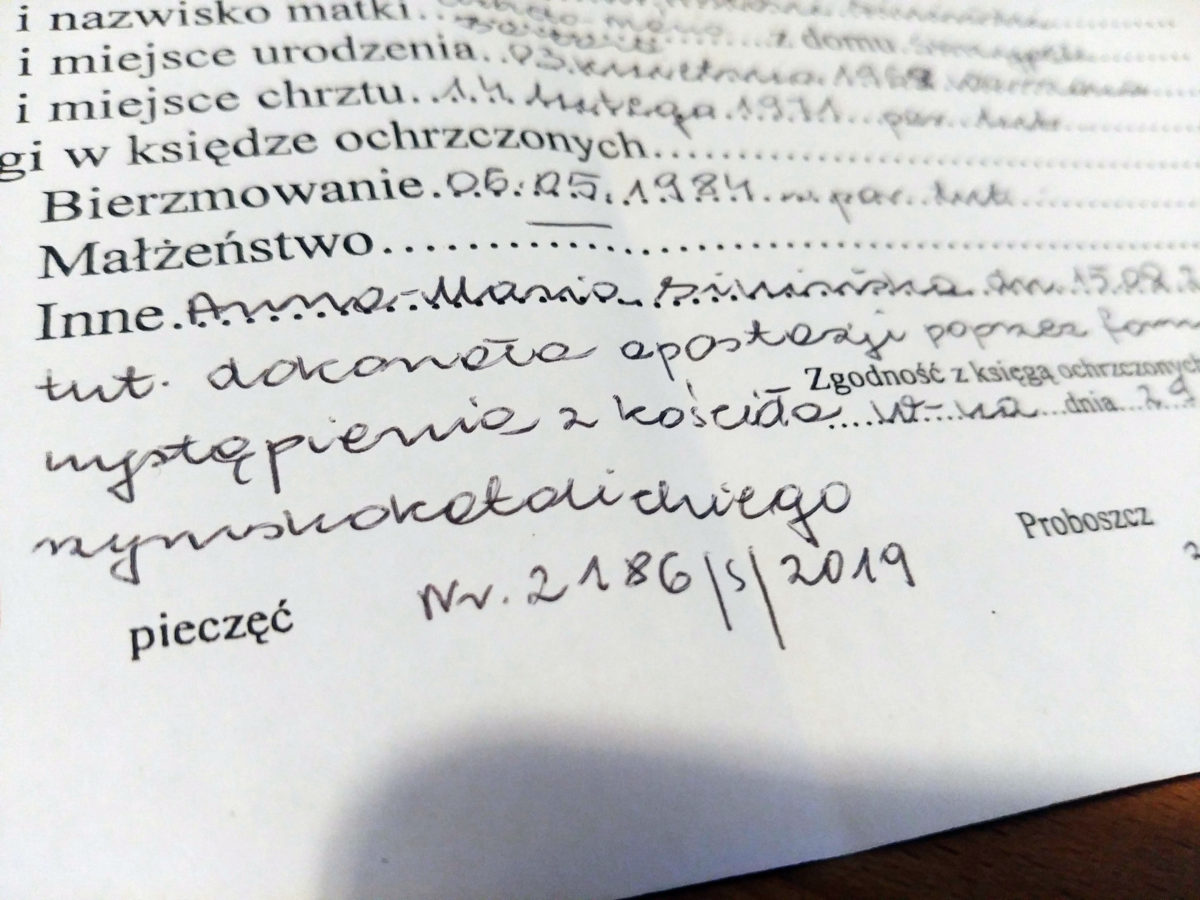 i nazwisko matki
z domu
i miejsce urodzenia..03.kwietnia.1968
i miejsce chrztu..14 lutego.1971...par..
gi w księdze ochrzczonych
Bierzmowanie.06.05.1984.w par.
Małżeństwo
Inne.Anna-Maria dn.15.08.2
tut. dokonała apostazji poprzez form
Zgodność z księgą ochrzczonych
wystąpienia z kościoła W-wa...dnia...29
rzymskokatolickiego
Proboszcz
Nr. 2186/S/2019
pieczęć